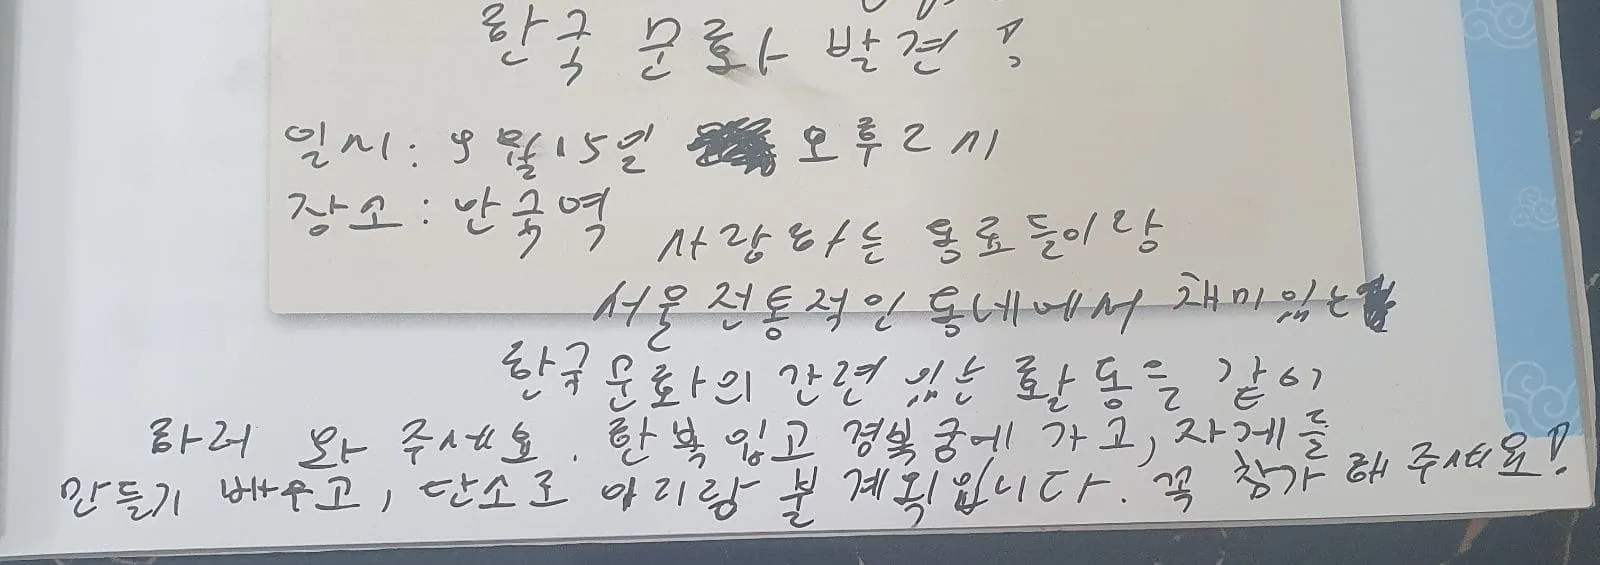 한국 문화 발견!
일시: 9월 15일 오후 2시
장소: 안국역
사랑하는 동료들이랑
서울 전통적인 동네에서 재미있는
한국 문화의 간련 있는 활동을 같이
하러 와 주세요. 한복 입고 경복궁에 가고, 자게를
만들기 배우고, 단소로 아리랑 불 계획입니다. 꼭 참가해 주세요!